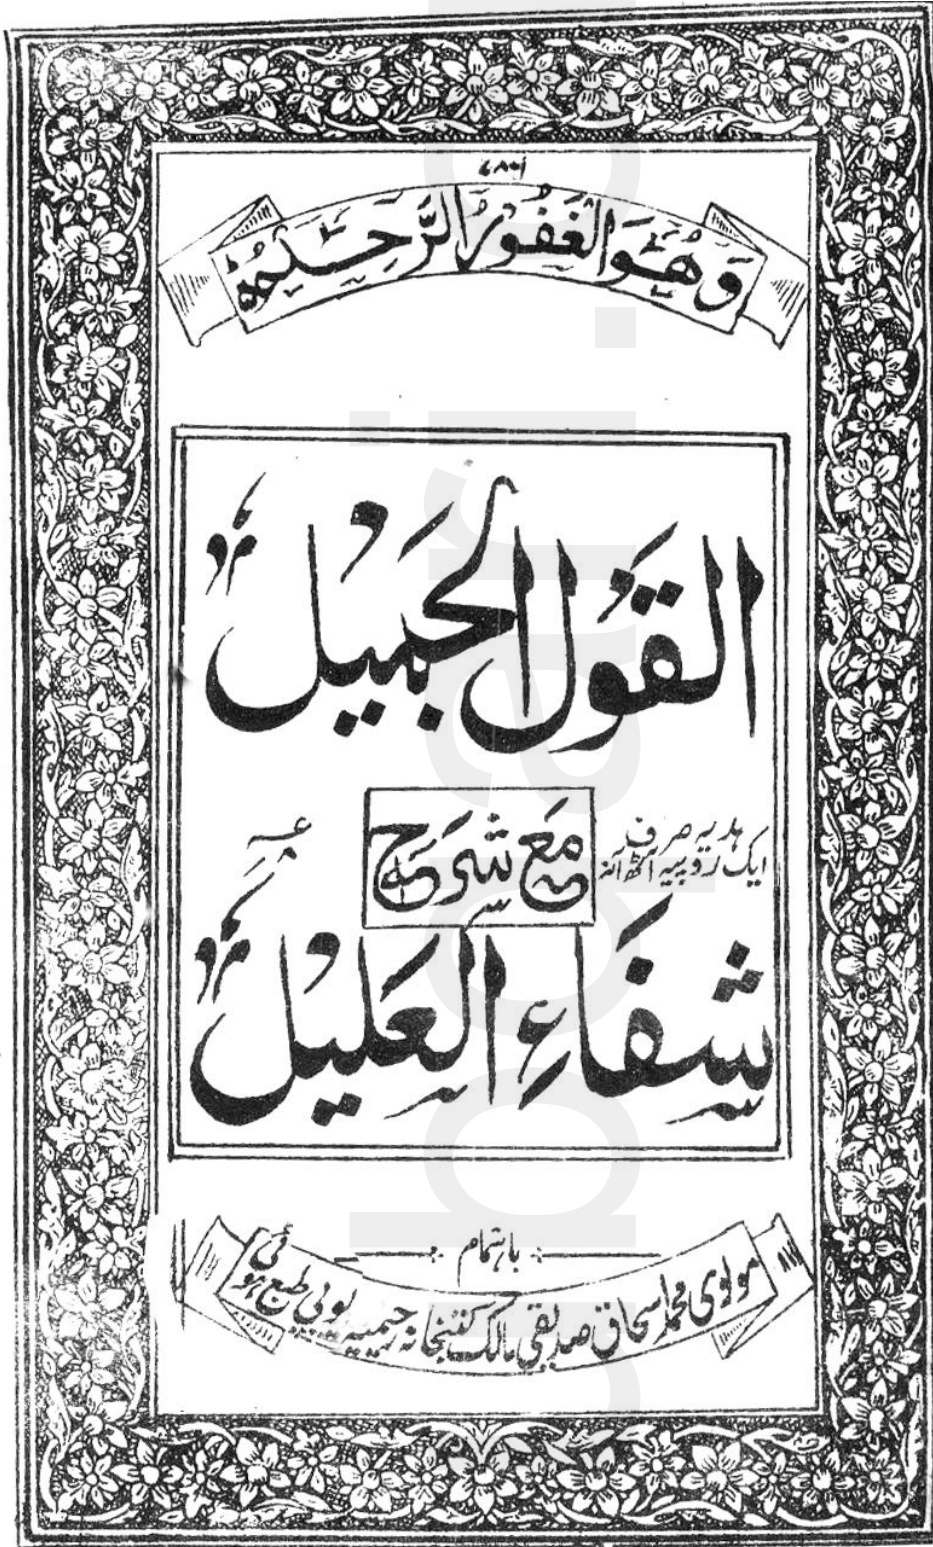 ۷۸۶
وَهُوَ الْغَفُوْرُ الرَّحِيْمُ
القول الجميل
ہدیہ صرف
ایک روپیہ آٹھ آنہ
مع شرح
شفاء العليل
باہتمام
مولوی محمد اسحاق صدیقی مالک کتبخانہ رحیمیہ یوپی طبع ہوئی